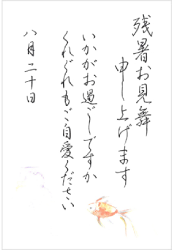 残暑お見舞
申し上げます
いかがお過ごしですか
くれぐれもご自愛ください
八月二十日